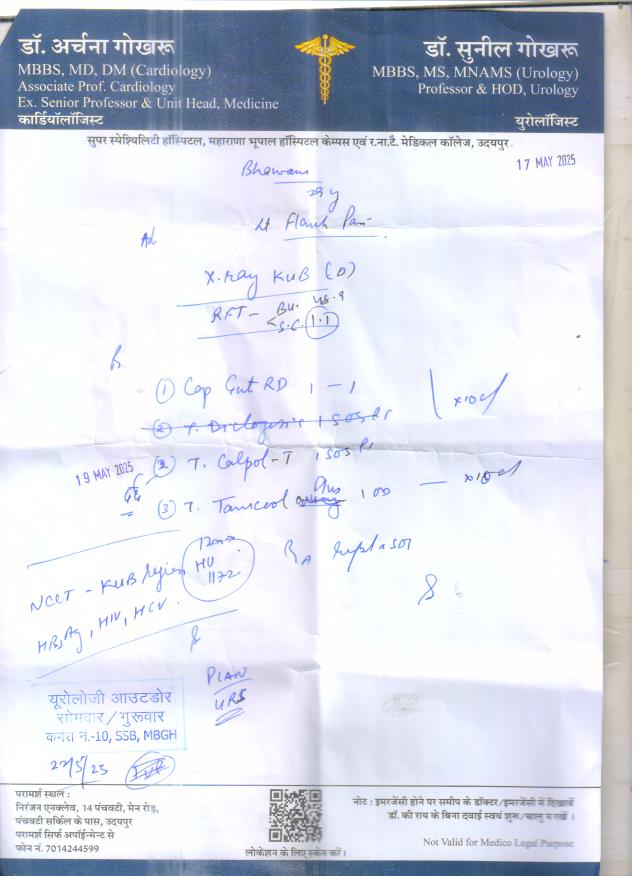 डॉ. अर्चना गोखरू
MBBS, MD, DM (Cardiology)
Associate Prof. Cardiology
Ex. Senior Professor & Unit Head, Medicine
कार्डियॉलॉजिस्ट
डॉ. सुनील गोखरू
MBBS, MS, MNAMS (Urology)
Professor & HOD, Urology
यूरोलॉजिस्ट
सुपर स्पेश्यिलिटी हॉस्पिटल, महाराणा भूपाल हॉस्पिटल केम्पस एवं र.ना.टै. मेडिकल कॉलेज, उदयपुर
17 MAY 2025
Flank Pain
X-ray KUB (D)
RFT -
S.C. 1.1
① Cap Gut RD 1 - 1
x10d
② T. Calpol-T 1 SOS
19 MAY 2025
③ T. Plus 1 OD x10d
NCCT - KUB
HU 1172
HBsAg, HIV, HCV
PLAN
URS
यूरोलोजी आउटडोर
सोमवार/गुरूवार
कमरा नं.-10, SSB, MBGH
परामर्श स्थल :
निरंजन एनक्लेव, 14 पंचवटी, मेन रोड़,
पंचवटी सर्किल के पास, उदयपुर
परामर्श सिर्फ अपॉईन्मेन्ट से
फोन नं. 7014244599
लोकेशन के लिए स्केन करें।
नोट : इमरजेंसी होने पर समीप के डॉक्टर/इमरजेंसी में दिखावें
डॉ. की राय के बिना दवाई स्वयं शुरू/चालु न रखें।
Not Valid for Medico Legal Purpose